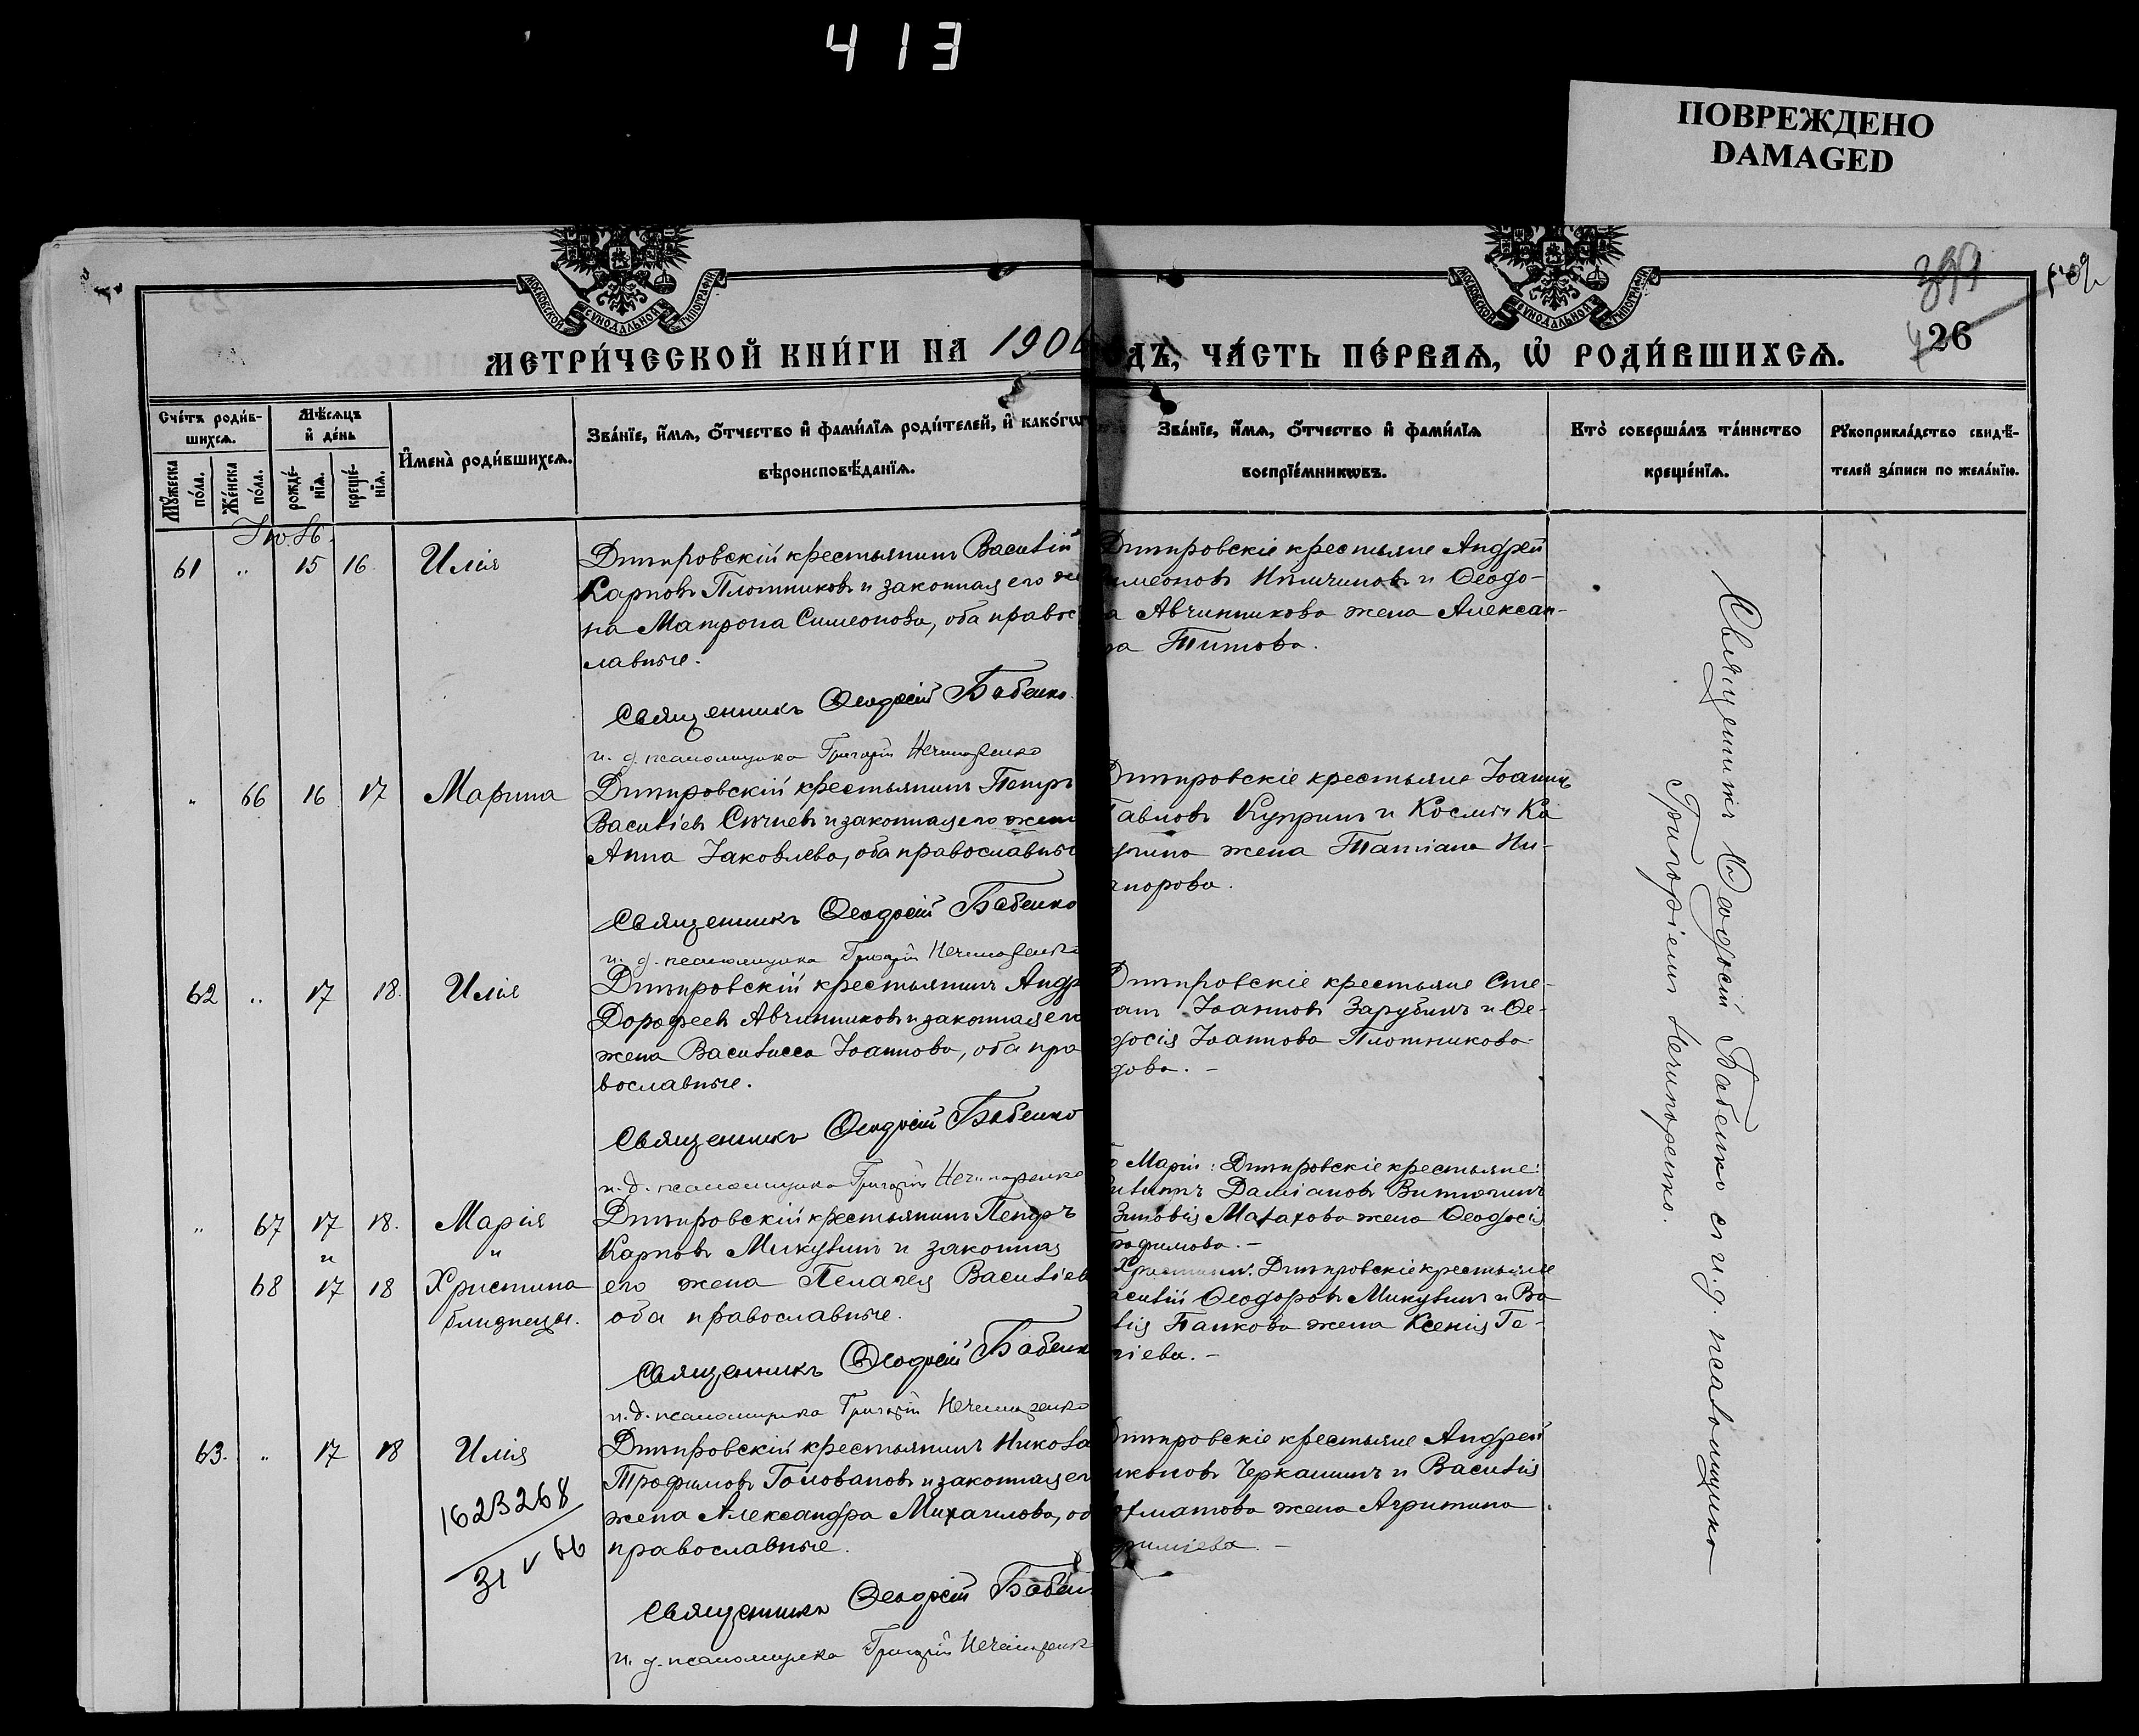 413
ПОВРЕЖДЕНО
DAMAGED
МОСКОВСКОЙ СѴНОДАЛЬНОЙ ТИПОГРАФІИ
МОСКОВСКОЙ СѴНОДАЛЬНОЙ ТИПОГРАФІИ
399
26
МЕТРИ́ЧЕСКОЙ КНИ́ГИ НА 190
ДЪ, ЧА́СТЬ ПЕ́РВАЯ, Ѡ҆ РОДИ́ВШИХСѦ.
Сче́тъ роди́в-
шихсѧ.
Мꙋ́жеска по́ла.
Же́нска по́ла.
Мѣ́сѧцъ
и҆ де́нь
рожде́-
нїѧ.
креще́-
нїѧ.
И҆мена̀ роди́вшихсѧ.
Зва́нїе, и҆́мѧ, ѻ҆́тчество и҆ фами́лїѧ роди́телей, и҆ како́гѡ
вѣроисповѣ́данїѧ.
Зва́нїе, и҆́мѧ, ѻ҆́тчество и҆ фами́лїѧ
воспрїе́мникѡвъ.
Кто̀ соверша́лъ та́инство
креще́нїѧ.
Рꙋкоприкла́дство свидѣ́-
телей за́писи по жела́нїю.
61 " 15 16. Илія
Дмитровскій крестьянинъ Василій
Карповъ Плотниковъ и законная его же
на Матрона Симеонова, оба правос
лавные.
Священникъ Ѳеодосій Бабенко.
и. д. псаломщика Григорій Нечипоренко
Дмитровскіе крестьяне Андрей
имеоновъ и Ѳеодо-
а Авчинникова жена Алексан-
ра Титова.
" 66 16 17 Марина
Дмитровскій крестьянинъ Петръ
Васильевъ Сычевъ и законная его жена
Анна Іаковлева, оба православные
Священникъ Ѳеодосій Бабенко
и. д. псаломщика Григорій Нечипоренко
Дмитровскіе крестьяне Іоаннъ
авловъ Купринъ и Космы Ка
жена Татіана Ни-
анорова.
62 " 17 18. Илія
Дмитровскій крестьянинъ Андр
Дорофеевъ Авчинниковъ и законная его
жена Василисса Іоаннова, оба пра
вославные.
Священникъ Ѳеодосій Бабенко
и. д. псаломщика Григорій Нечипоренко
Дмитровскіе крестьяне Сте-
анъ Іоанновъ Зарубинъ и Ѳе-
досія Іоаннова Плотникова
дова. –
" 67 17 18. Марія
" "
68 17 18 Христина
близнецы.
Дмитровскій крестьянинъ Петръ
Карповъ Микулинъ и законная
его жена Пелагея Васильев
оба православные.
Священникъ Ѳеодосій Бабенк
и. д. псаломщика Григорій Нечипоренко
Маріи: Дмитровскіе крестьяне:
Даміановъ
Зиновія Малахова жена Ѳеодосія
рофимова. –
Христины: Дмитровскіе крестьяне
асилій Ѳеодоровъ Микулинъ и Ва
лія Панкова жена Ксенія Ге-
ргіева. –
63. " 17 18 Илія
1623268
31 V 66
Дмитровскій крестьянинъ Никола
Трофимовъ Головановъ и законная ег
жена Александра Михаилова, об
православные.
Священникъ Ѳеодосій Бабен
и. д. псаломщика Григорій Нечипоренк
Дмитровскіе крестьяне Андрей
иконовъ Черкашинъ и Василія
жена Агрипина
Священникъ Ѳеодосій Бабенко съ и. д. псаломщика
Григоріемъ Нечипоренко.